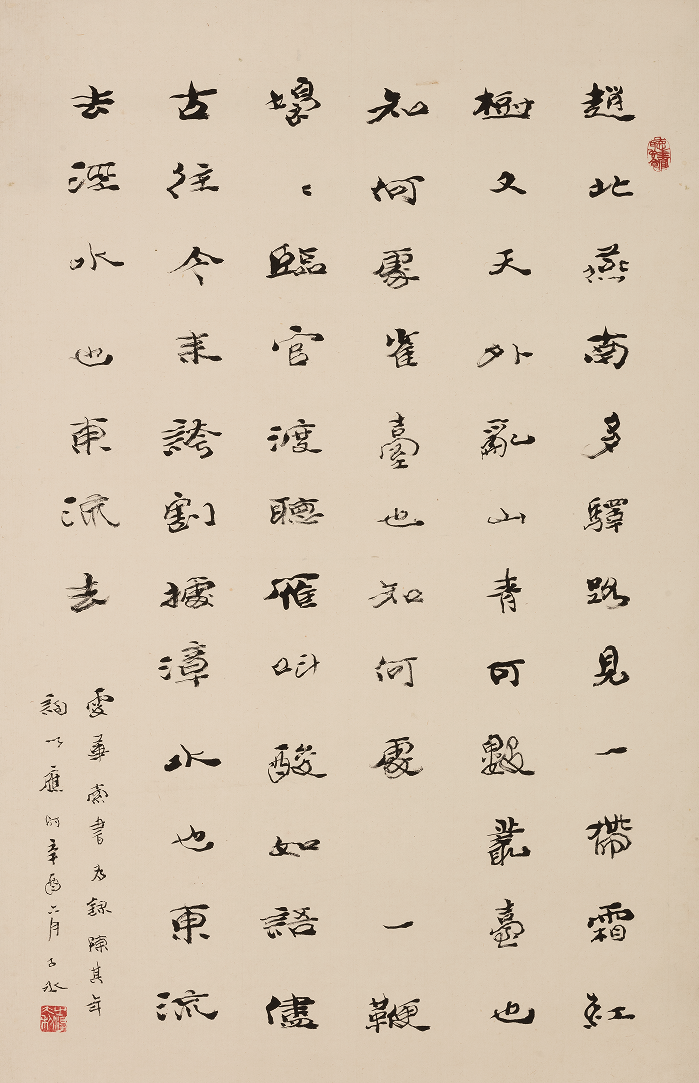 趙北燕南多驛路見一帶霜紅
樹又天外亂山青可數叢臺也
知何處雀臺也知何處一鞭
裊裊臨官渡聽雁叫酸如語儘
古往今來誇割據漳水也東流
去溼水也東流去
雯華索書為錄陳其年
詞以應時辛酉六月子水